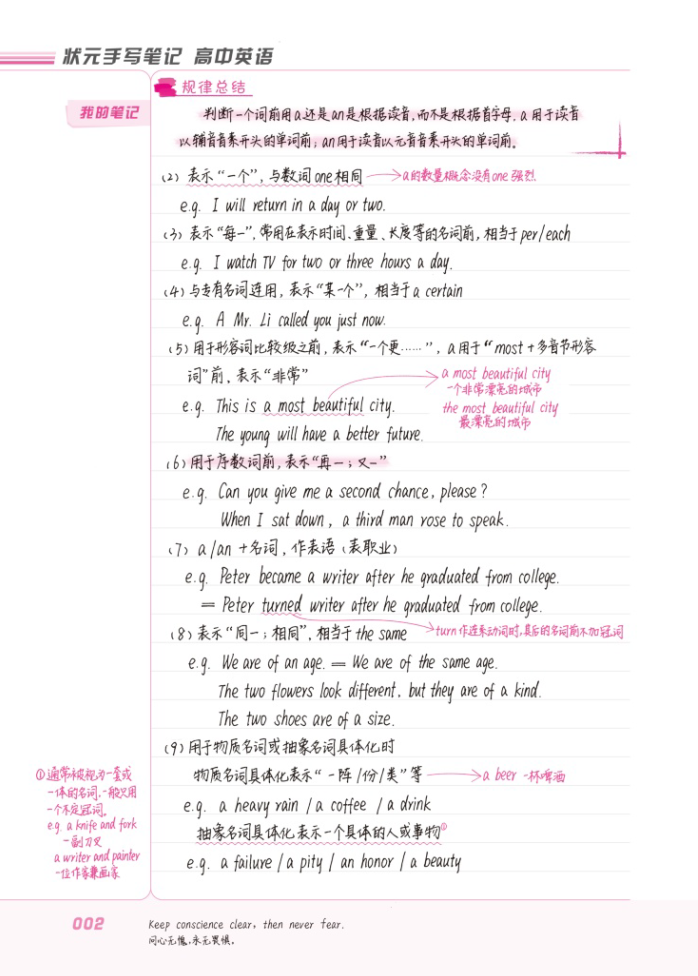 状元手写笔记 高中英语
规律总结
我的笔记
判断一个词前用a还是an是根据读音,而不是根据首字母。a 用于读音
以辅音音素开头的单词前;an用于读音以元音音素开头的单词前。
(2) 表示“一个”,与数词one相同 a的数量概念没有one 强烈
e.g. I will return in a day or two.
(3) 表示“每一”,常用在表示时间、重量、长度等的名词前,相当于per/each
e.g. I watch TV for two or three hours a day.
(4) 与专有名词连用,表示“某一个”,相当于a certain
e.g. A Mr. Li called you just now.
(5) 用于形容词比较级之前,表示“一个更……”,a用于“most+多音节形容
词”前,表示“非常” a most beautiful city
一个非常漂亮的城市
e.g. This is a most beautiful city. the most beautiful city
最漂亮的城市
The young will have a better future.
(6) 用于序数词前,表示“再一;又一”
e.g. Can you give me a second chance, please?
When I sat down, a third man rose to speak.
(7) a/an +名词,作表语(表职业)
e.g. Peter became a writer after he graduated from college.
= Peter turned writer after he graduated from college.
(8) 表示“同一;相同”,相当于the same turn作连系动词时,其后的名词前不加冠词
e.g. We are of an age. = We are of the same age.
The two flowers look different, but they are of a kind.
The two shoes are of a size.
(9) 用于物质名词或抽象名词具体化时
物质名词具体化表示“一阵/份/类”等 a beer 一杯啤酒
e.g. a heavy rain / a coffee / a drink
抽象名词具体化表示一个具体的人或事物①
e.g. a failure / a pity / an honor / a beauty
①通常被视为一套或
一体的名词,一般只用
一个不定冠词。
e.g. a knife and fork
一副刀叉
a writer and painter
一位作家兼画家
002
Keep conscience clear, then never fear.
问心无愧,永无畏惧。